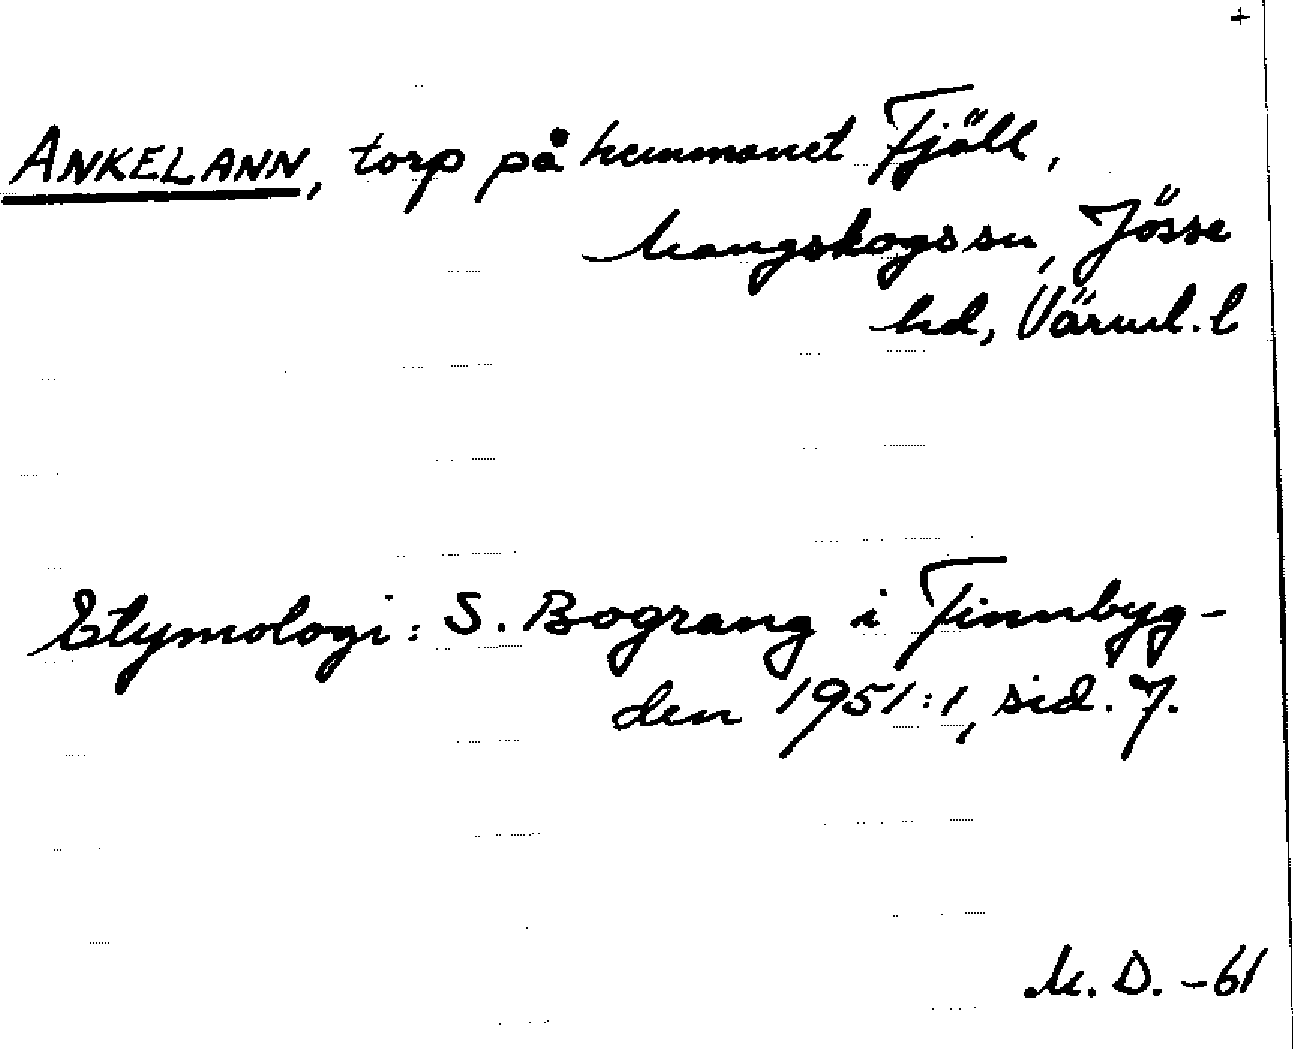 +
ANKELANN, torp på hemmanet Fjäll,
Mangskogs sn, Jösse
hd, Värml. l
Etymologi: S. Bograng i Finnbyg-
den 1951:1, sid. 7.
M. D. -61